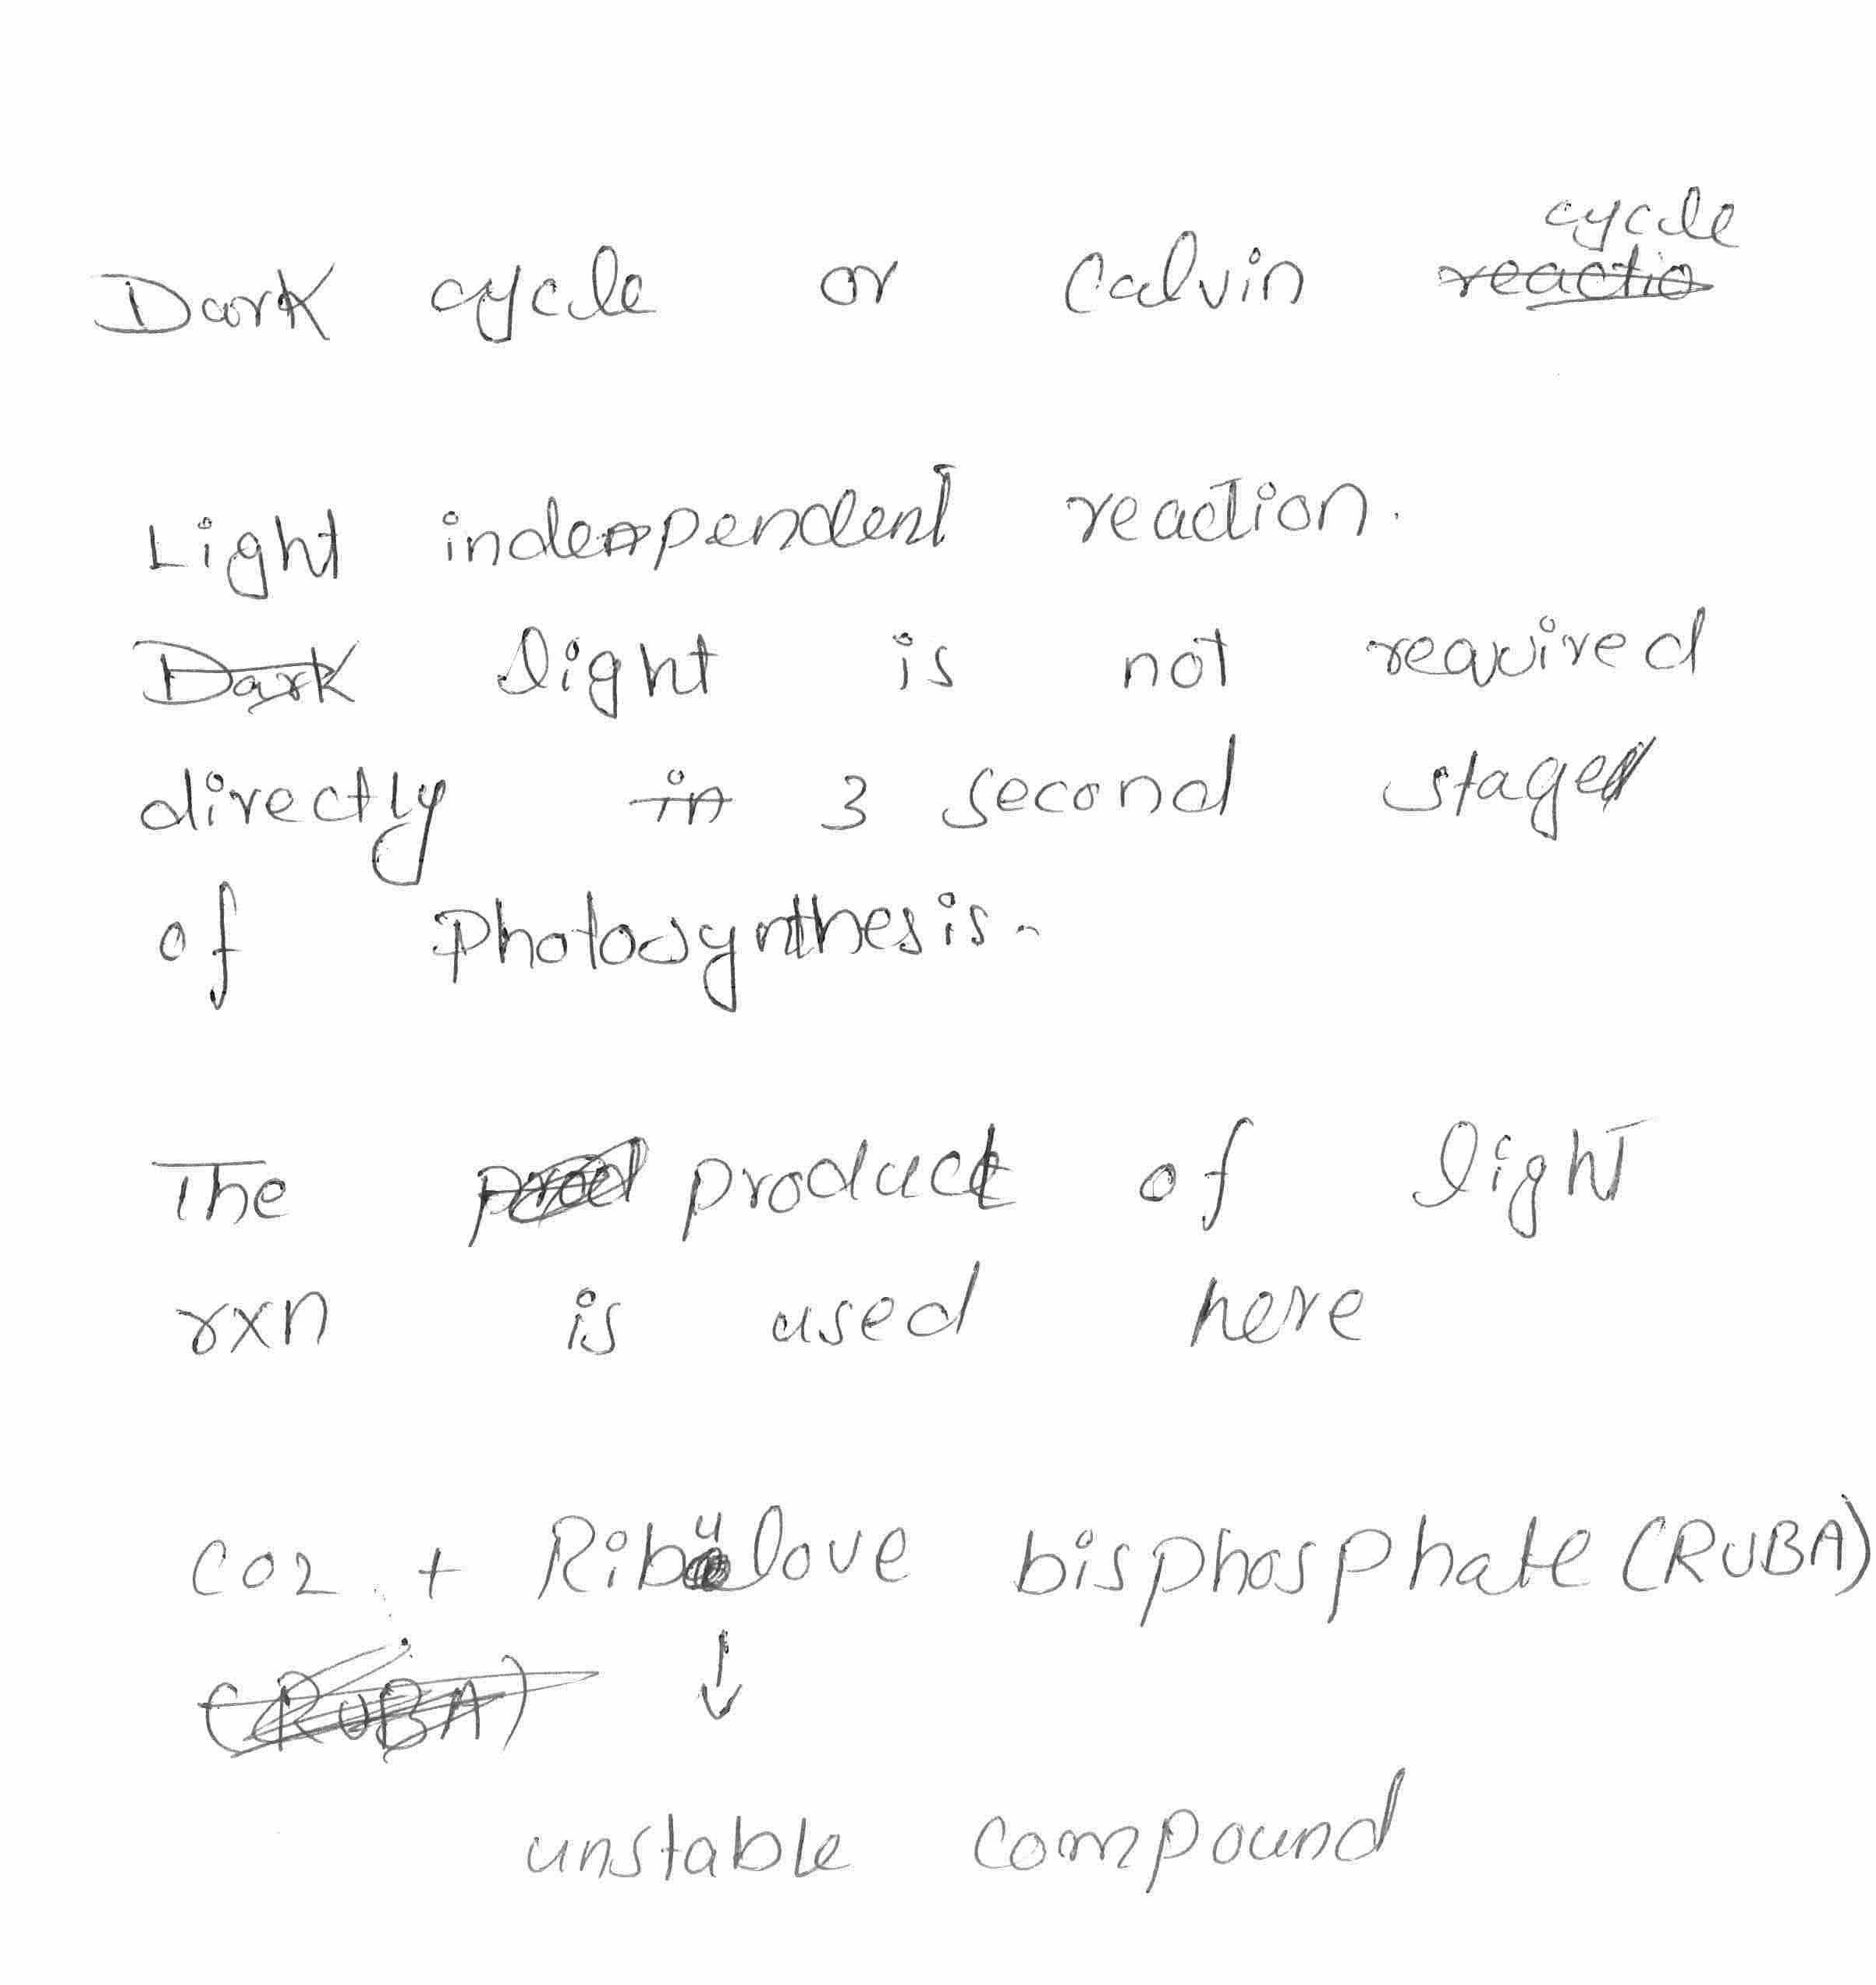 Dark cycle or Calvin cycle
Light independent reaction.
light is not required
directly 3 second stage
of Photosynthesis.
The product of light
rxn is used here
CO2 + Ribulove bisphosphate (RUBA)
↓
unstable compound